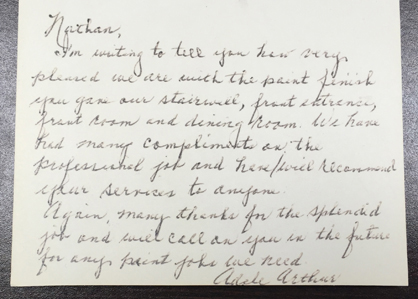 Nathan,
I'm writing to tell you how very
pleased we are with the paint finish
you gave our stairwell, front entrance,
front room and dining room. We have
had many compliments on the
professional job and have/will recommend
your services to anyone.
Again, many thanks for the splendid
job and will call on you in the future
for any paint jobs we need.
Adele Arthur